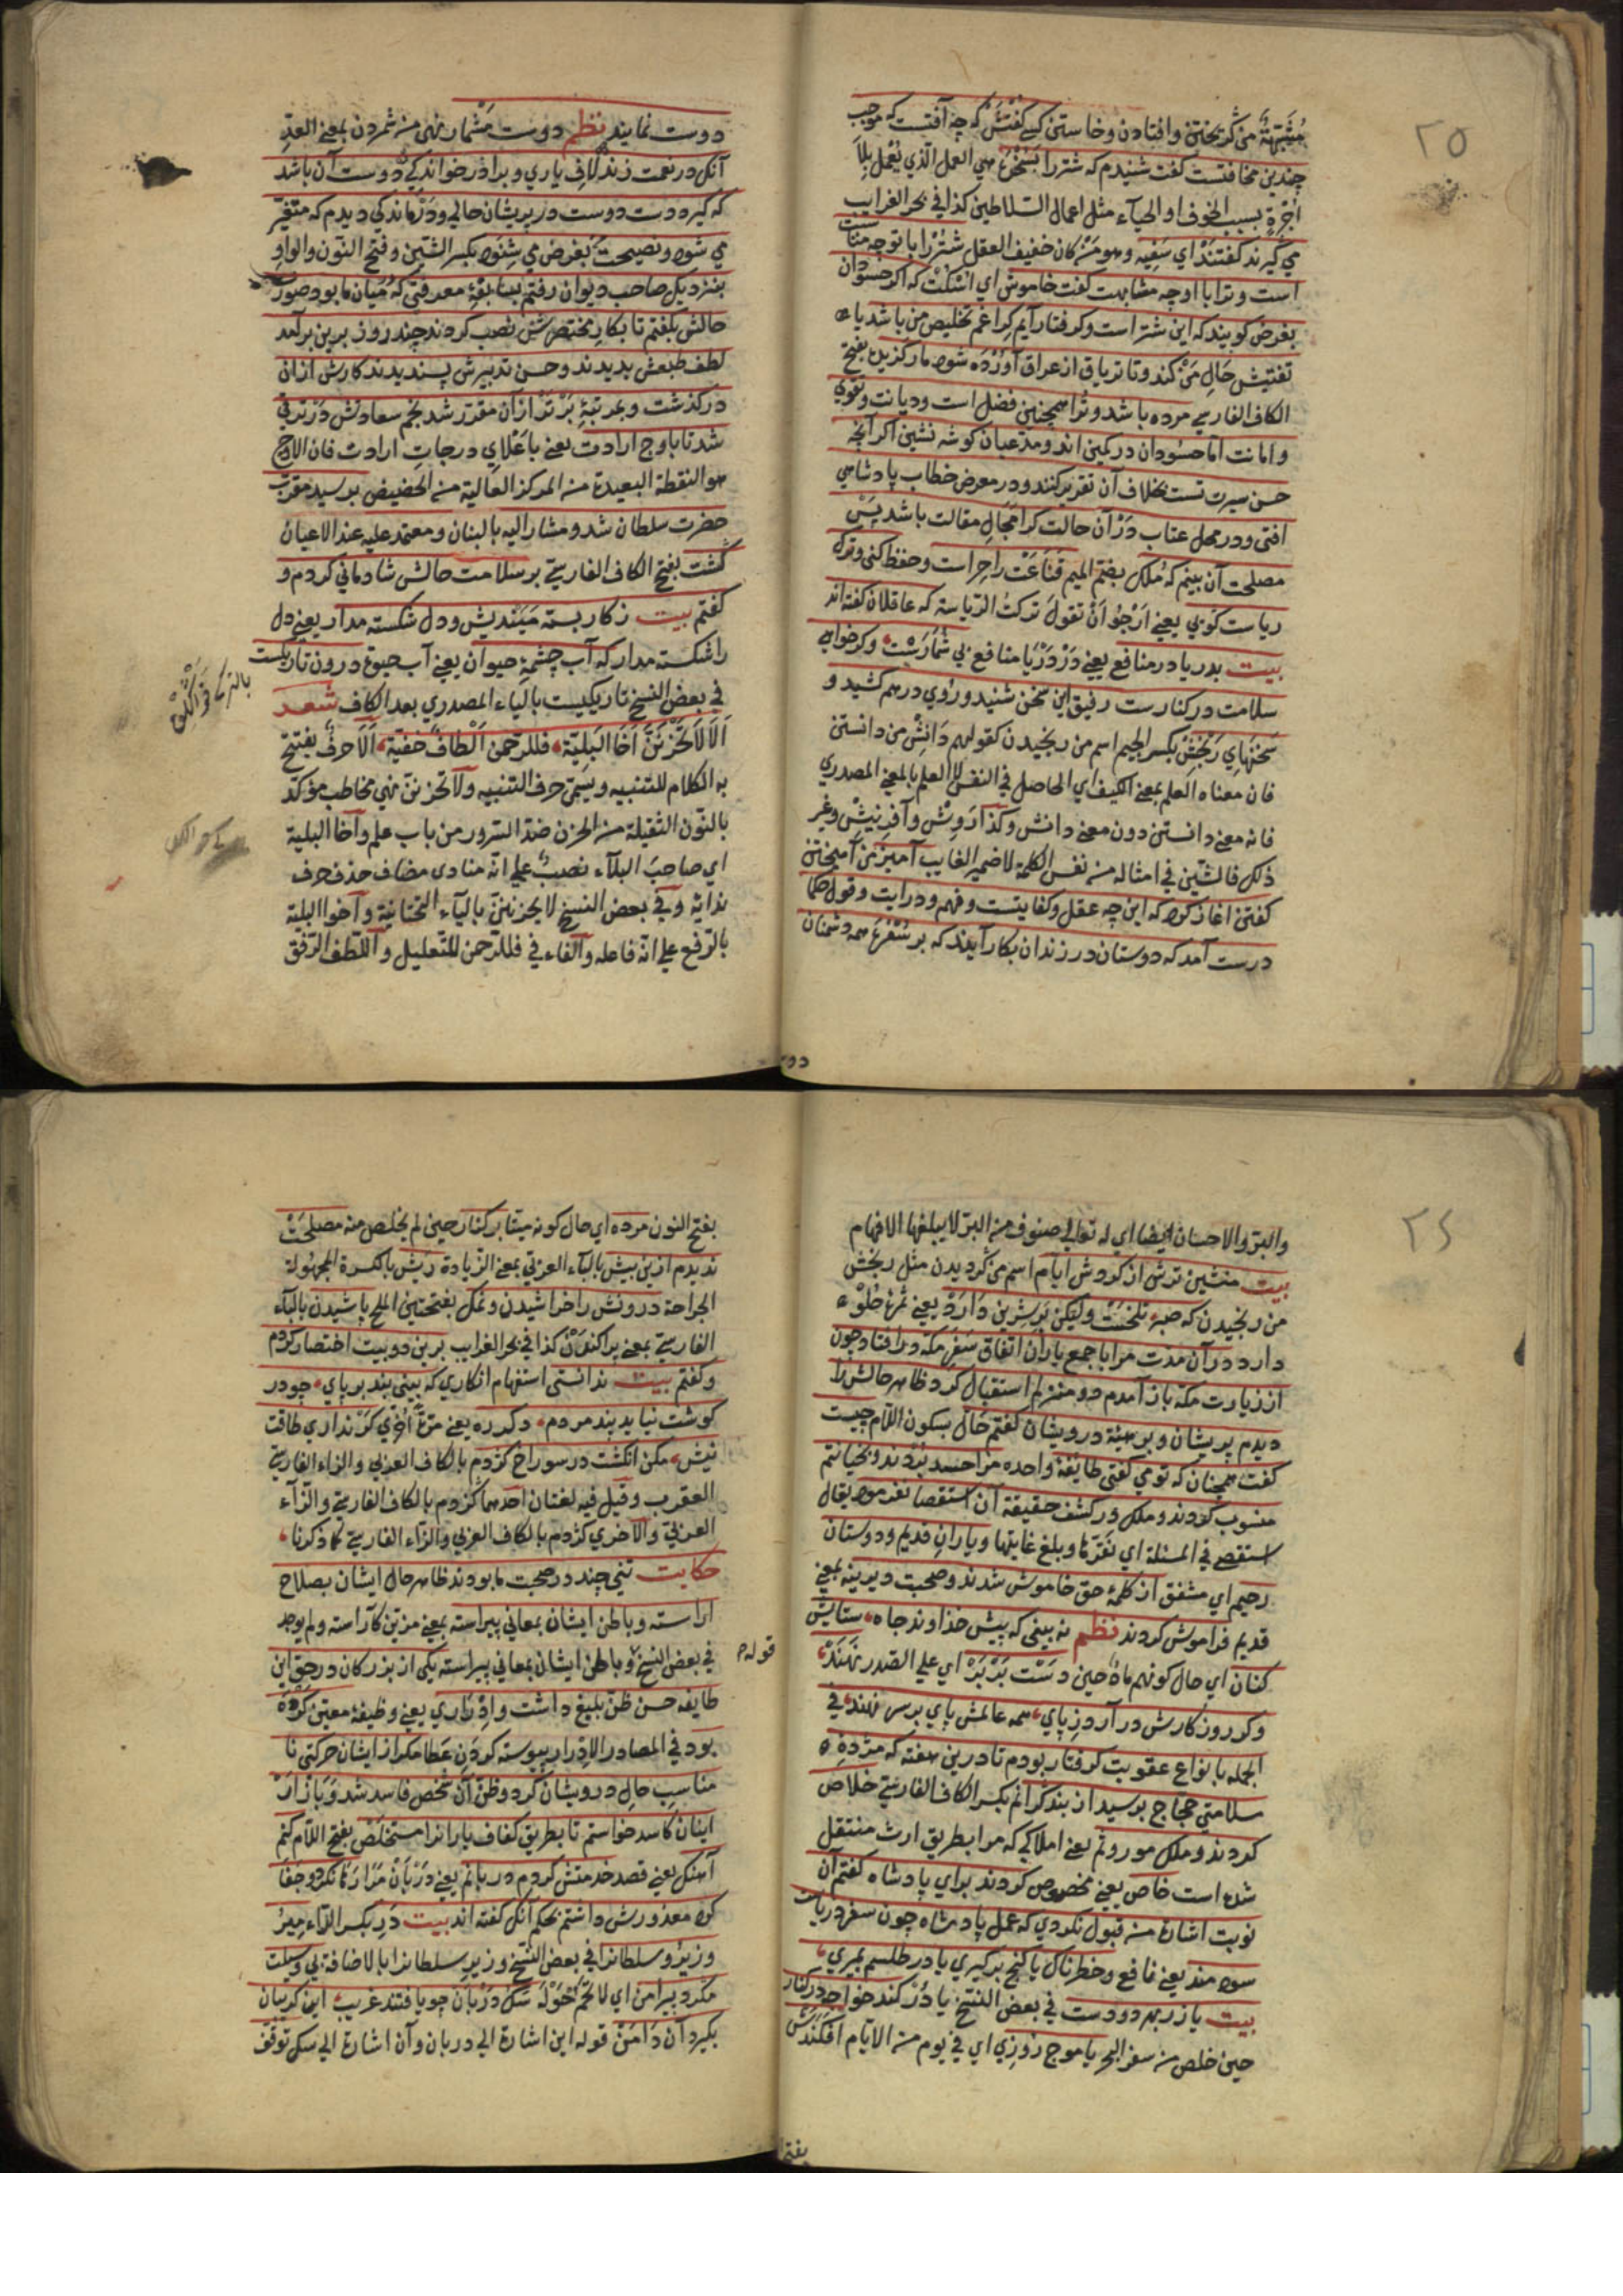 ٢٥
مشبهة من گریختن وافتادن وخاستن كسى گفتش كه چه آفتست كه موجب
چندین مخافتست گفت شنیدم كه شتررا بسخره هي العمل الذي يعمل بلا
اجرة بسبب الخوف او الحياء مثل اعمال السلاطين كذا في بحر الغرايب
مي گیرند گفتند اي سفيه وهو من كان خفيف العقل شتر را با تو چه مناسبت
است وترا با او چه مشابهت گفت خاموش اي اسكت كه اگر حسودان
بغرض گویند كه این شتر است وگرفتار آیم كرا غم تخلیص من باشد یا
تفتیش حال من كند وتا تریاق از عراق آورده شود مارگزیده بفتح
الكاف الفارسي مرده باشد وترا همچنین فضل است ودیانت وتقوي
وامانت اما حسودان در كمین اند ومدعیان گوشه نشین اگر آنچه
حسن سیرت تست بخلاف آن تقریر كنند ودر معرض خطاب پادشاهي
افتي ودر محل عتاب در آن حالت كرا مجال مقالت باشد پس
مصلحت آن بینم كه ملك بضم الميم قناعت را حراست وحفظ كني وترك
ریاست گویي يعني ارجو ان تقول تركت الرياسة كه عاقلان گفته اند
بیت بدریا در منافع يعني در دریا منافع بي شمارست وگر خواهي
سلامت در كنارست رفیق این سخن شنید وروي درهم كشید و
سخنهاي رنجش بكسر الجيم اسم من رنجيدن كقولهم دانش من دانستن
فان معناه العلم بمعنى الكيف اي الحاصل في النفس لا العلم بالمعنى المصدري
فانه معنى دانستن دون معنى دانش وكذا روش وآفرينش وغير
ذلك فالشين في امثاله من نفس الكلمة لا ضمير الغايب آميز من آميختن
گفتن اغاز كرد كه این چه عقل وكفایتست وفهم ودرایت وقول حكما
درست آمد كه دوستان در زندان بكار آیند كه بر سفره همه دشمنان
دوست نمایند نظم دوست مشمار نهي من شمردن بمعنى العد
آنكه در نعمت زند لاف یاري وبرادر خواندگي دوست آن باشد
كه گیرد دست دوست در پریشان حالي ودرماندگي دیدم كه متغیر
مي شود ونصیحت بغرض مي شنود بكسر الشين وفتح النون والواو
بنزدیك صاحب دیوان رفتم بسابقه معرفتي كه میان ما بود صورت
حالش بگفتم تا بكار مختصرش نصب كردند چند روز برین برآمد
لطف طبعش بدیدند وحسن تدبیرش پسندیدند كارش از ان
درگذشت وبمرتبه برتر از ان مقرر شد نجم سعادتش در ترقي
شد تا باوج ارادت يعني باعلاي درجات ارادت فان الاوج
هو النقطة البعيدة من المركز العالية من الحضيض برسید مقرب
حضرت سلطان شد ومشار اليه بالبنان ومعتمد عليه عند الاعيان
گشت بفتح الكاف الفارسية بر سلامت حالش شادماني كردم و
گفتم بیت ز كار بسته میندیش ودل شكسته مدار يعني دل
را شكسته مدار كه آب چشمه حیوان يعني آب حيوة درون تاریكست
في بعض النسخ تاريكيست بالياء المصدري بعد الكاف شعر
الا لا تحزنن اخا البلية فللرحمن الطاف خفية الا حرف يفتتح
به الكلام للتنبيه ويسمى حرف التنبيه ولا تحزنن نهي مخاطب مؤكد
بالنون الثقيلة من الحزن ضد السرور من باب علم واخا البلية
اي صاحب البلاء نصب على انه منادى مضاف حذف حرف
ندائه وفي بعض النسخ لا يحزنن بالياء التحتانية واخو البلية
بالرفع على انه فاعله والفاء في فللرحمن للتعليل واللطف الرفق
دو
٢٤
والبر والاحسان ايضا اي له تعالى صنوف من البر لا يبلغها الافهام
بیت منشین ترش از گردش ایام اسم من گرديدن مثل رنجش
من رنجيدن كه صبر تلخست ولیكن بر شیرین دارد يعني ثمره حلوء
دارد در آن مدت مرا با جمع یاران اتفاق سفر مكه در افتاد چون
از زیارت مكه باز آمدم دو منزلم استقبال كرد ظاهر حالش را
دیدم پریشان وبر هیئة درویشان گفتم حال بسكون اللام چیست
گفت همچنان كه تو مي گفتي طایفه واحده مرا حسد بردند وبخیانتم
منسوب كردند وملك در كشف حقیقة آن استقصا نفرمود يقال
استقصى في المسئلة اي نقرها وبلغ غايتها ویاران قدیم ودوستان
رحیم اي مشفق از كلمه حق خاموش شدند وصحبت دیرینه بمعنى
قديم فراموش كردند نظم نه بیني كه پیش خداوند جاه ستایش
كنان اي حال كونهم مادحين دست بر بر اي على الصدر نهند
وگر روزگارش در آرد ز پاي همه عالمش پاي بر سر نهند في
الجمله بانواع عقوبت گرفتار بودم تا درین هفته كه مژده
سلامتي حجاج برسید از بند گرانم بكسر الكاف الفارسية خلاص
كردند وملك موروثم يعني املاكي كه مرا بطريق ارث منتقل
شده است خاص يعني مخصوص كردند براي پادشاه گفتم آن
نوبت اشارت من قبول نكردي كه عمل پادشاه چون سفر دریاست
سودمند يعني نافع وخطرناك یا گنج برگیري یا در طلسم بمیري
بیت یا زر بهر دو دست في بعض النسخ يا در كند خواجه در كنار
حين خلص من سفر البحر یا موج روزي اي في يوم من الايام افكندش
بفتح النون مرده اي حال كونه ميتا بر كنار حين لم يخلص منه مصلحت
ندیدم ازین بیش بالباء العربي بمعنى الزيادة ریش بالكسرة المجهولة
الجراحة درونش را خراشیدن ونمك بفتحتين الملح پاشیدن بالباء
الفارسية بمعنى پراكندن كذا في بحر الغرايب برین دو بیت اختصار كردم
وگفتم بیت ندانستي استفهام انكاري كه بیني بند بر پاي چو در
گوشت نیاید پند مردم دگر ره يعني مرة اخرى گر نداري طاقت
نیش مكن انگشت در سوراخ كژدم بالكاف العربي والزاء الفارسية
العقرب وقيل فيه لغتان احدهما گزدم بالكاف الفارسية والزاء
العربي والاخرى كژدم بالكاف العربي والزاء الفارسية كما ذكرنا
حكایت تني چند در صحبت ما بودند ظاهر حال ایشان بصلاح
اراسته وباطن ایشان بمعاني پیراسته بمعنى مزين كآراسته ولم يوجد
قوله
في بعض النسخ وباطن ایشان بمعاني پیراسته یكي از بزرگان در حق این
طایفه حسن ظن بلیغ داشت وادراري يعني وظيفة معين كرده
بود في المصادر الادرار پیوسته كردن عطا مگر از ایشان حركتي نا
مناسب حال درویشان كرد وظن آن شخص فاسد شد وبازار
اینان كاسد خواستم تا بطریق كفاف یارانرا مستخلص بفتح اللام كنم
آهنك يعني قصد خدمتش كردم دربانم يعني دربان مرا رها نكرد وجفا
كرد معذورش داشتم بحكم آنكه گفته اند بیت در بكسر الراء میر
ووزیر وسلطانرا في بعض النسخ وزير سلطانرا بالاضافة بي وسیلت
مگرد پیرامن اي لا تحم حوله سك ودربان چو یافتند غریب این گریبان
بگیرد آن دامن قوله این اشارة الى دربان وآن اشارة الى سك توقف
بفتح